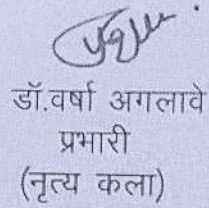 डॉ.वर्षा अगलावे
प्रभारी
(नृत्य कला)